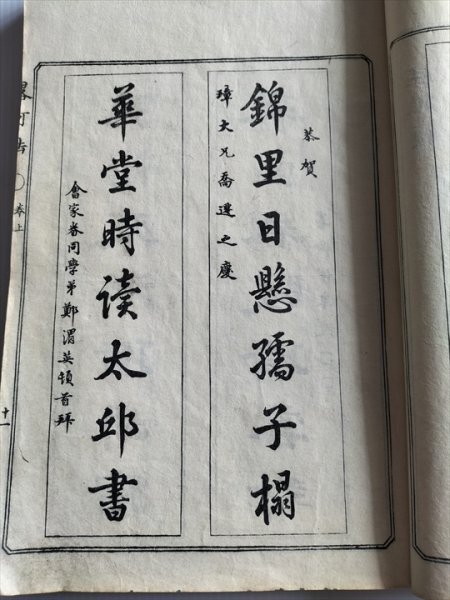 恭賀
錦里日懸孺子榻
璋大兄喬遷之慶
華堂時读太邱書
會家眷同學弟鄭渭英頓首拜
卷上
十一